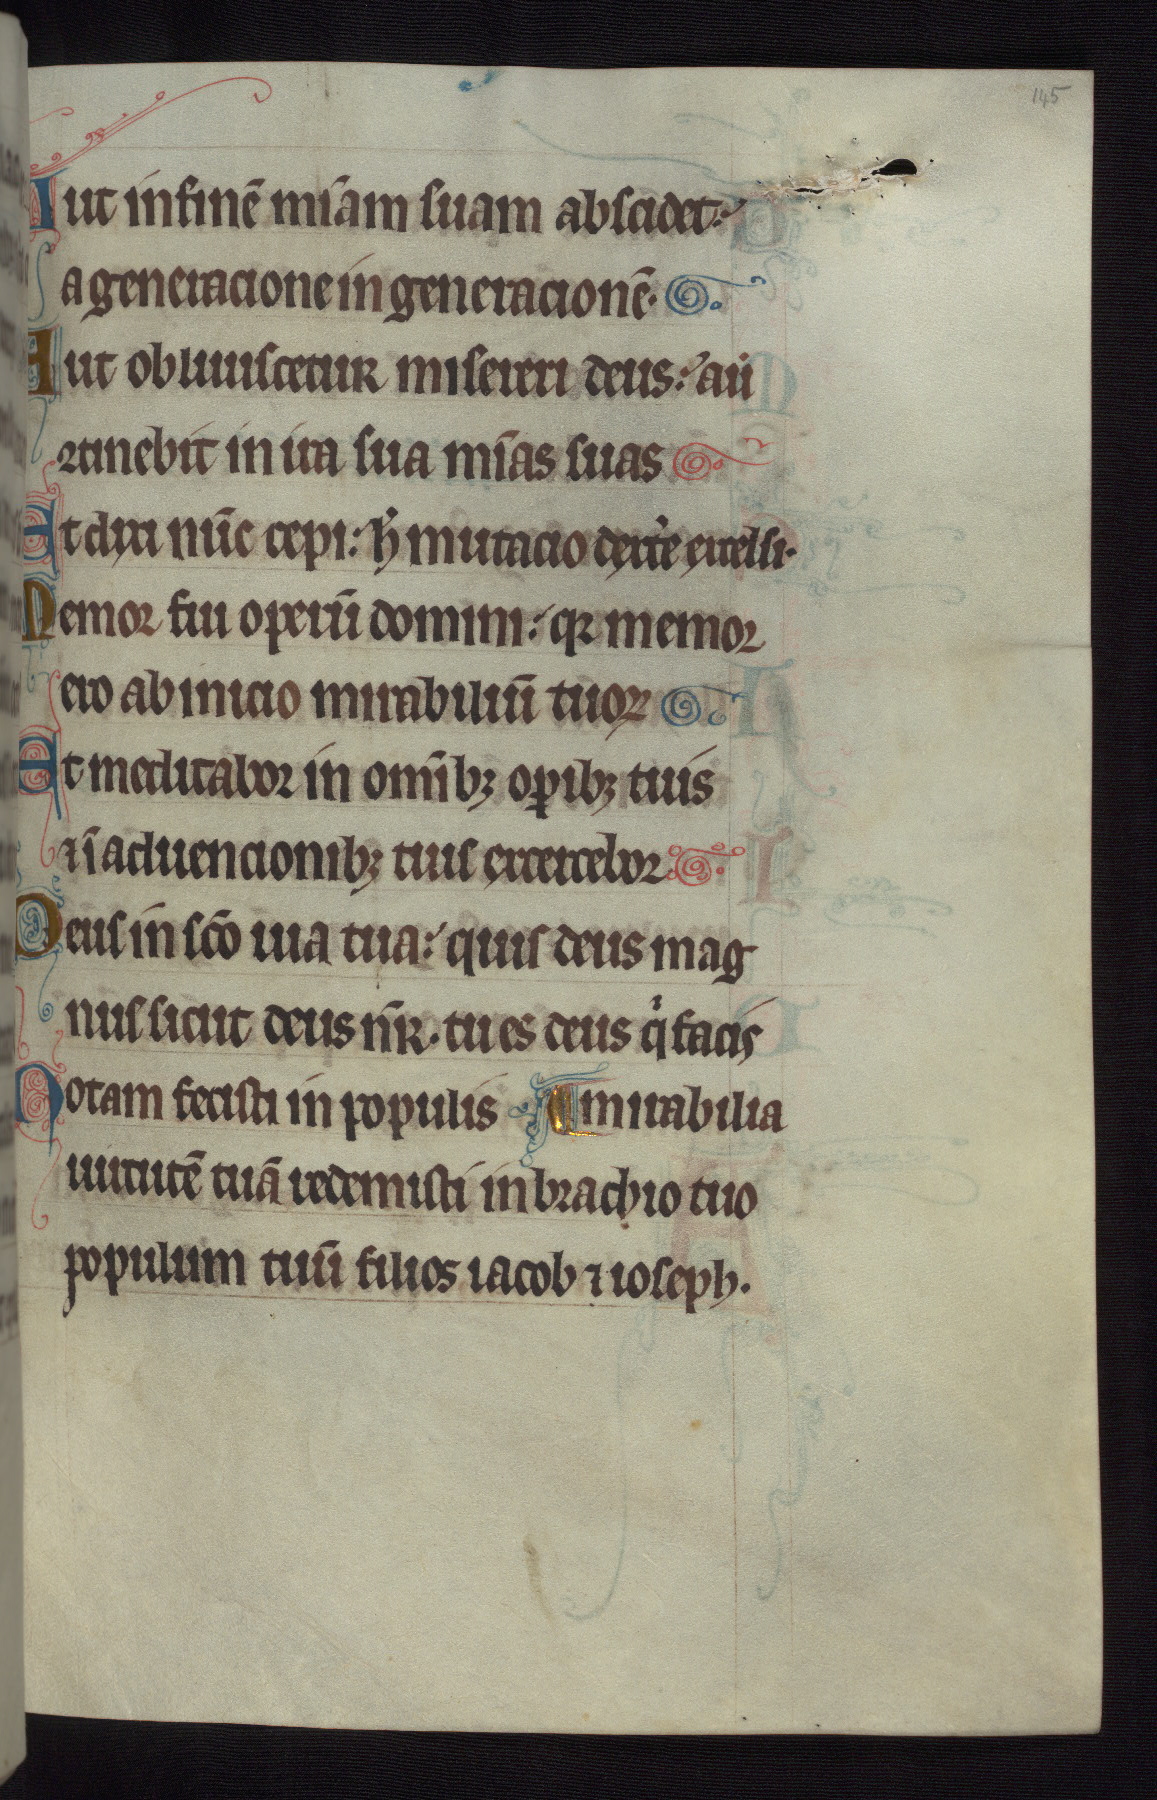 145
Aut in finē mīam suam abscidet:
a generacione in generacionē.
Aut obliuiscetur misereri deus: aū
ꝯtinebit in ira sua mīas suas
Et dixi nūc cepi: h̄ mutacio dext̾e excelsi.
Memor fui operū domini: qꝛ memor
ero ab inicio mirabiliū tuoꝝ
Et meditabor in om̄ibꝫ oꝑibꝫ tuis
⁊ ī aduencionibꝫ tuis exercebor
Deus in sc̄o uia tua: quis deus mag
nus sicut deus nr̄. tu es deus qͥ facis
Notam fecisti in populis ¶ mirabilia
uirtutē tuā redemisti in brachio tuo
populum tuū filios iacob ⁊ ioseph.